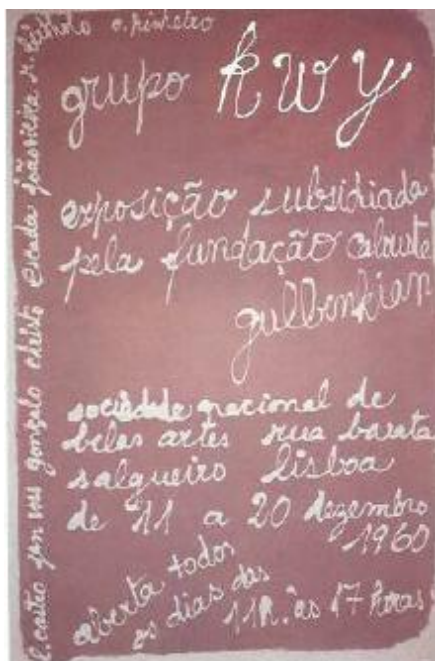 l. castro jan voss gonçalo christo escada joão vieira r. bértholo c. pinheiro
grupo kwy
exposição subsidiada
pela fundação calouste
gulbenkian
sociedade nacional de
belas artes rua barata
salgueiro lisboa
de 11 a 20 dezembro
1960
aberta todos
os dias das
11h. às 17 horas